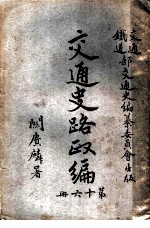 交通
鐵道部交通史編纂委員會出版
交通史路政編
第十六冊
關賡麟署